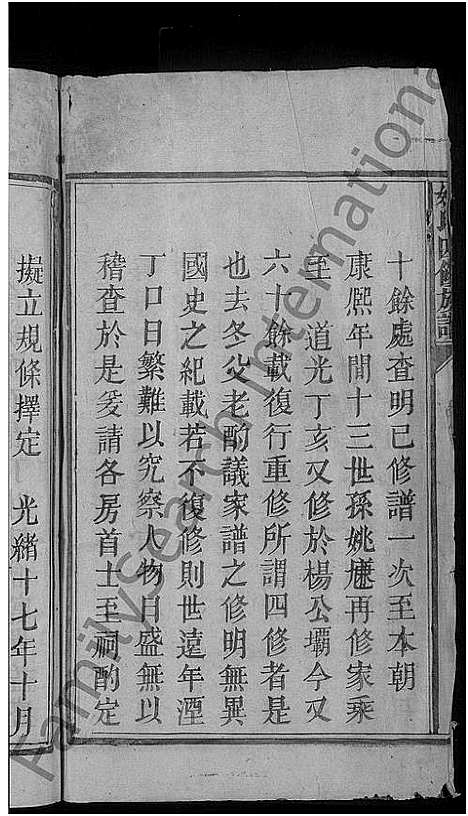 姚氏四修族譜
十餘處查明已修譜一次至本朝
康熙年間十三世孫姚㷰再修家乘
至　道光丁亥又修於楊公壩今又
六十餘載復行重修所謂四修者是
也去冬父老酌議家譜之修明無異
國史之紀載若不復修則世遠年湮
丁口日繁難以究察人物日盛無以
稽查於是爰請各房首士至祠酌定
擬立規條擇定　光緒十七年十月
FamilySearch International